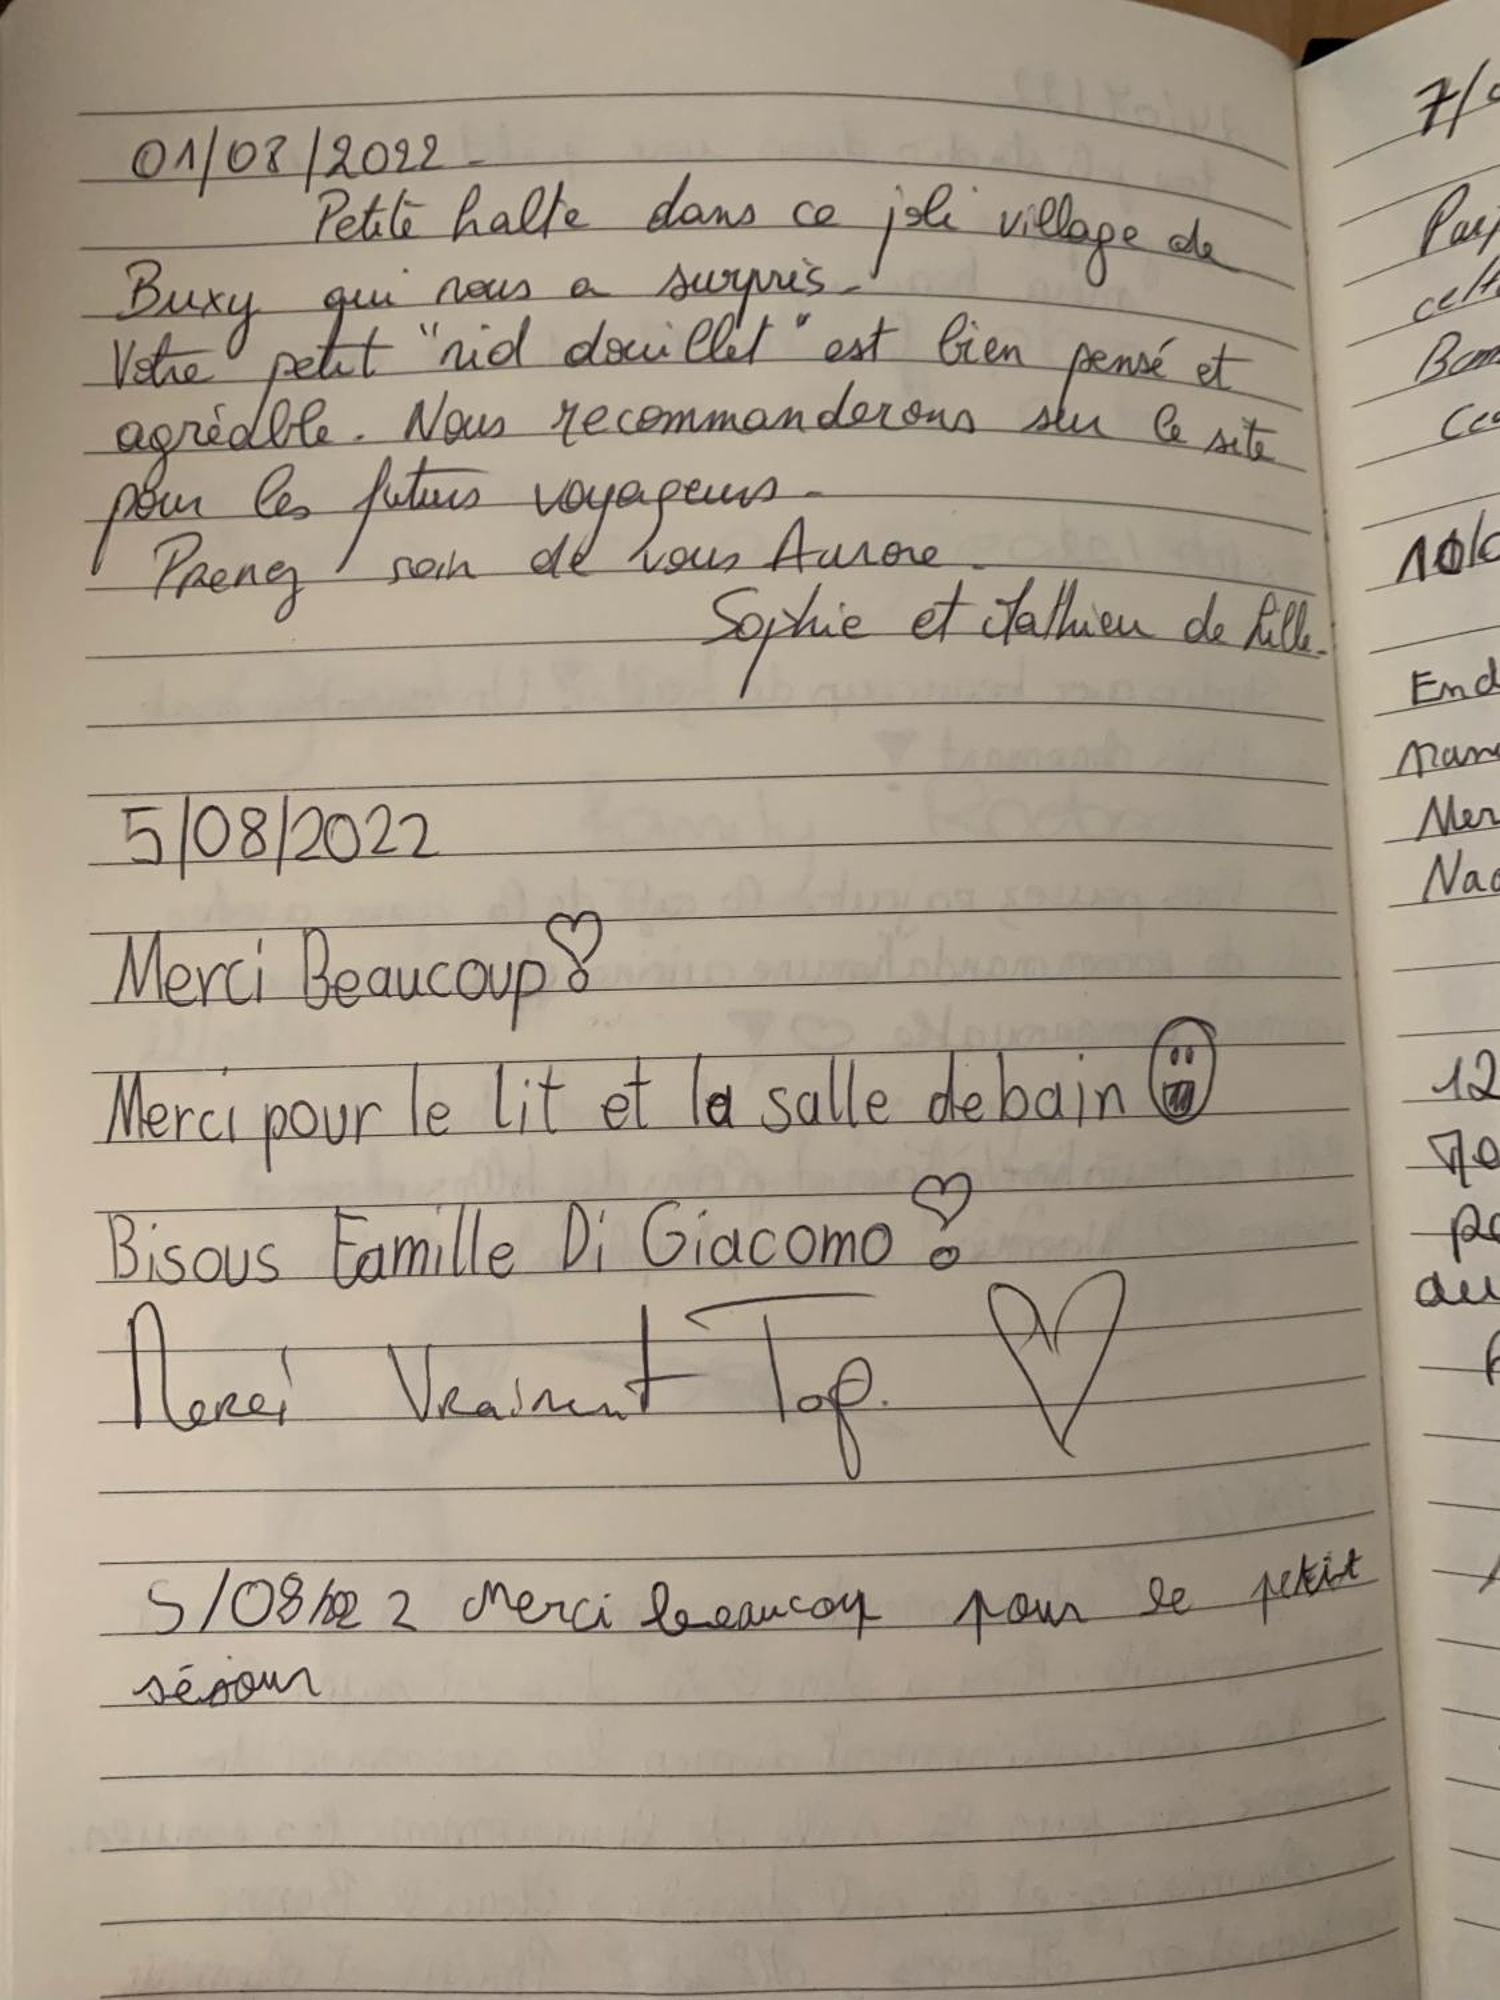 01/08/2022-
Petite halte dans ce joli village de
Buxy qui nous a surpris-
Votre petit "nid douillet" est bien pensé et
agréable. Nous recommanderons sur le site
pour les futurs voyageurs-
Prenez soin de vous Aurore-
Sophie et Mathieu de Lille-
5/08/2022
Merci Beaucoup
Merci pour le lit et la salle de bain
Bisous Famille Di Giacomo
Merci Vraiment Top.
5/08/2022 Merci beaucoup pour le petit
séjour
7/
10/
12